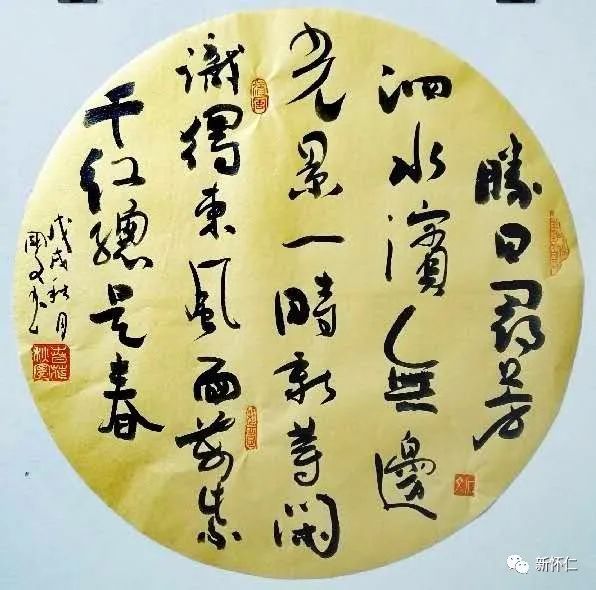 勝日尋芳
泗水濱無邊
光景一時新等閑
識得東風面萬紫
千红總是春
戊戌秋月
新怀仁